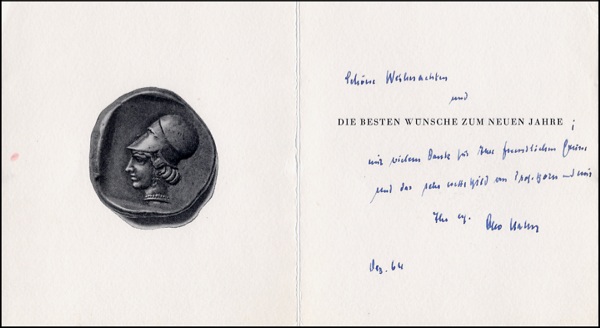 Schöne Weihnachten
und
DIE BESTEN WÜNSCHE ZUM NEUEN JAHRE
mit vielem Dank für Ihre freundlichen Grüsse
und das sehr nette Bild von Prof. Born und mir
Ihr Otto Hahn
Dez. 64